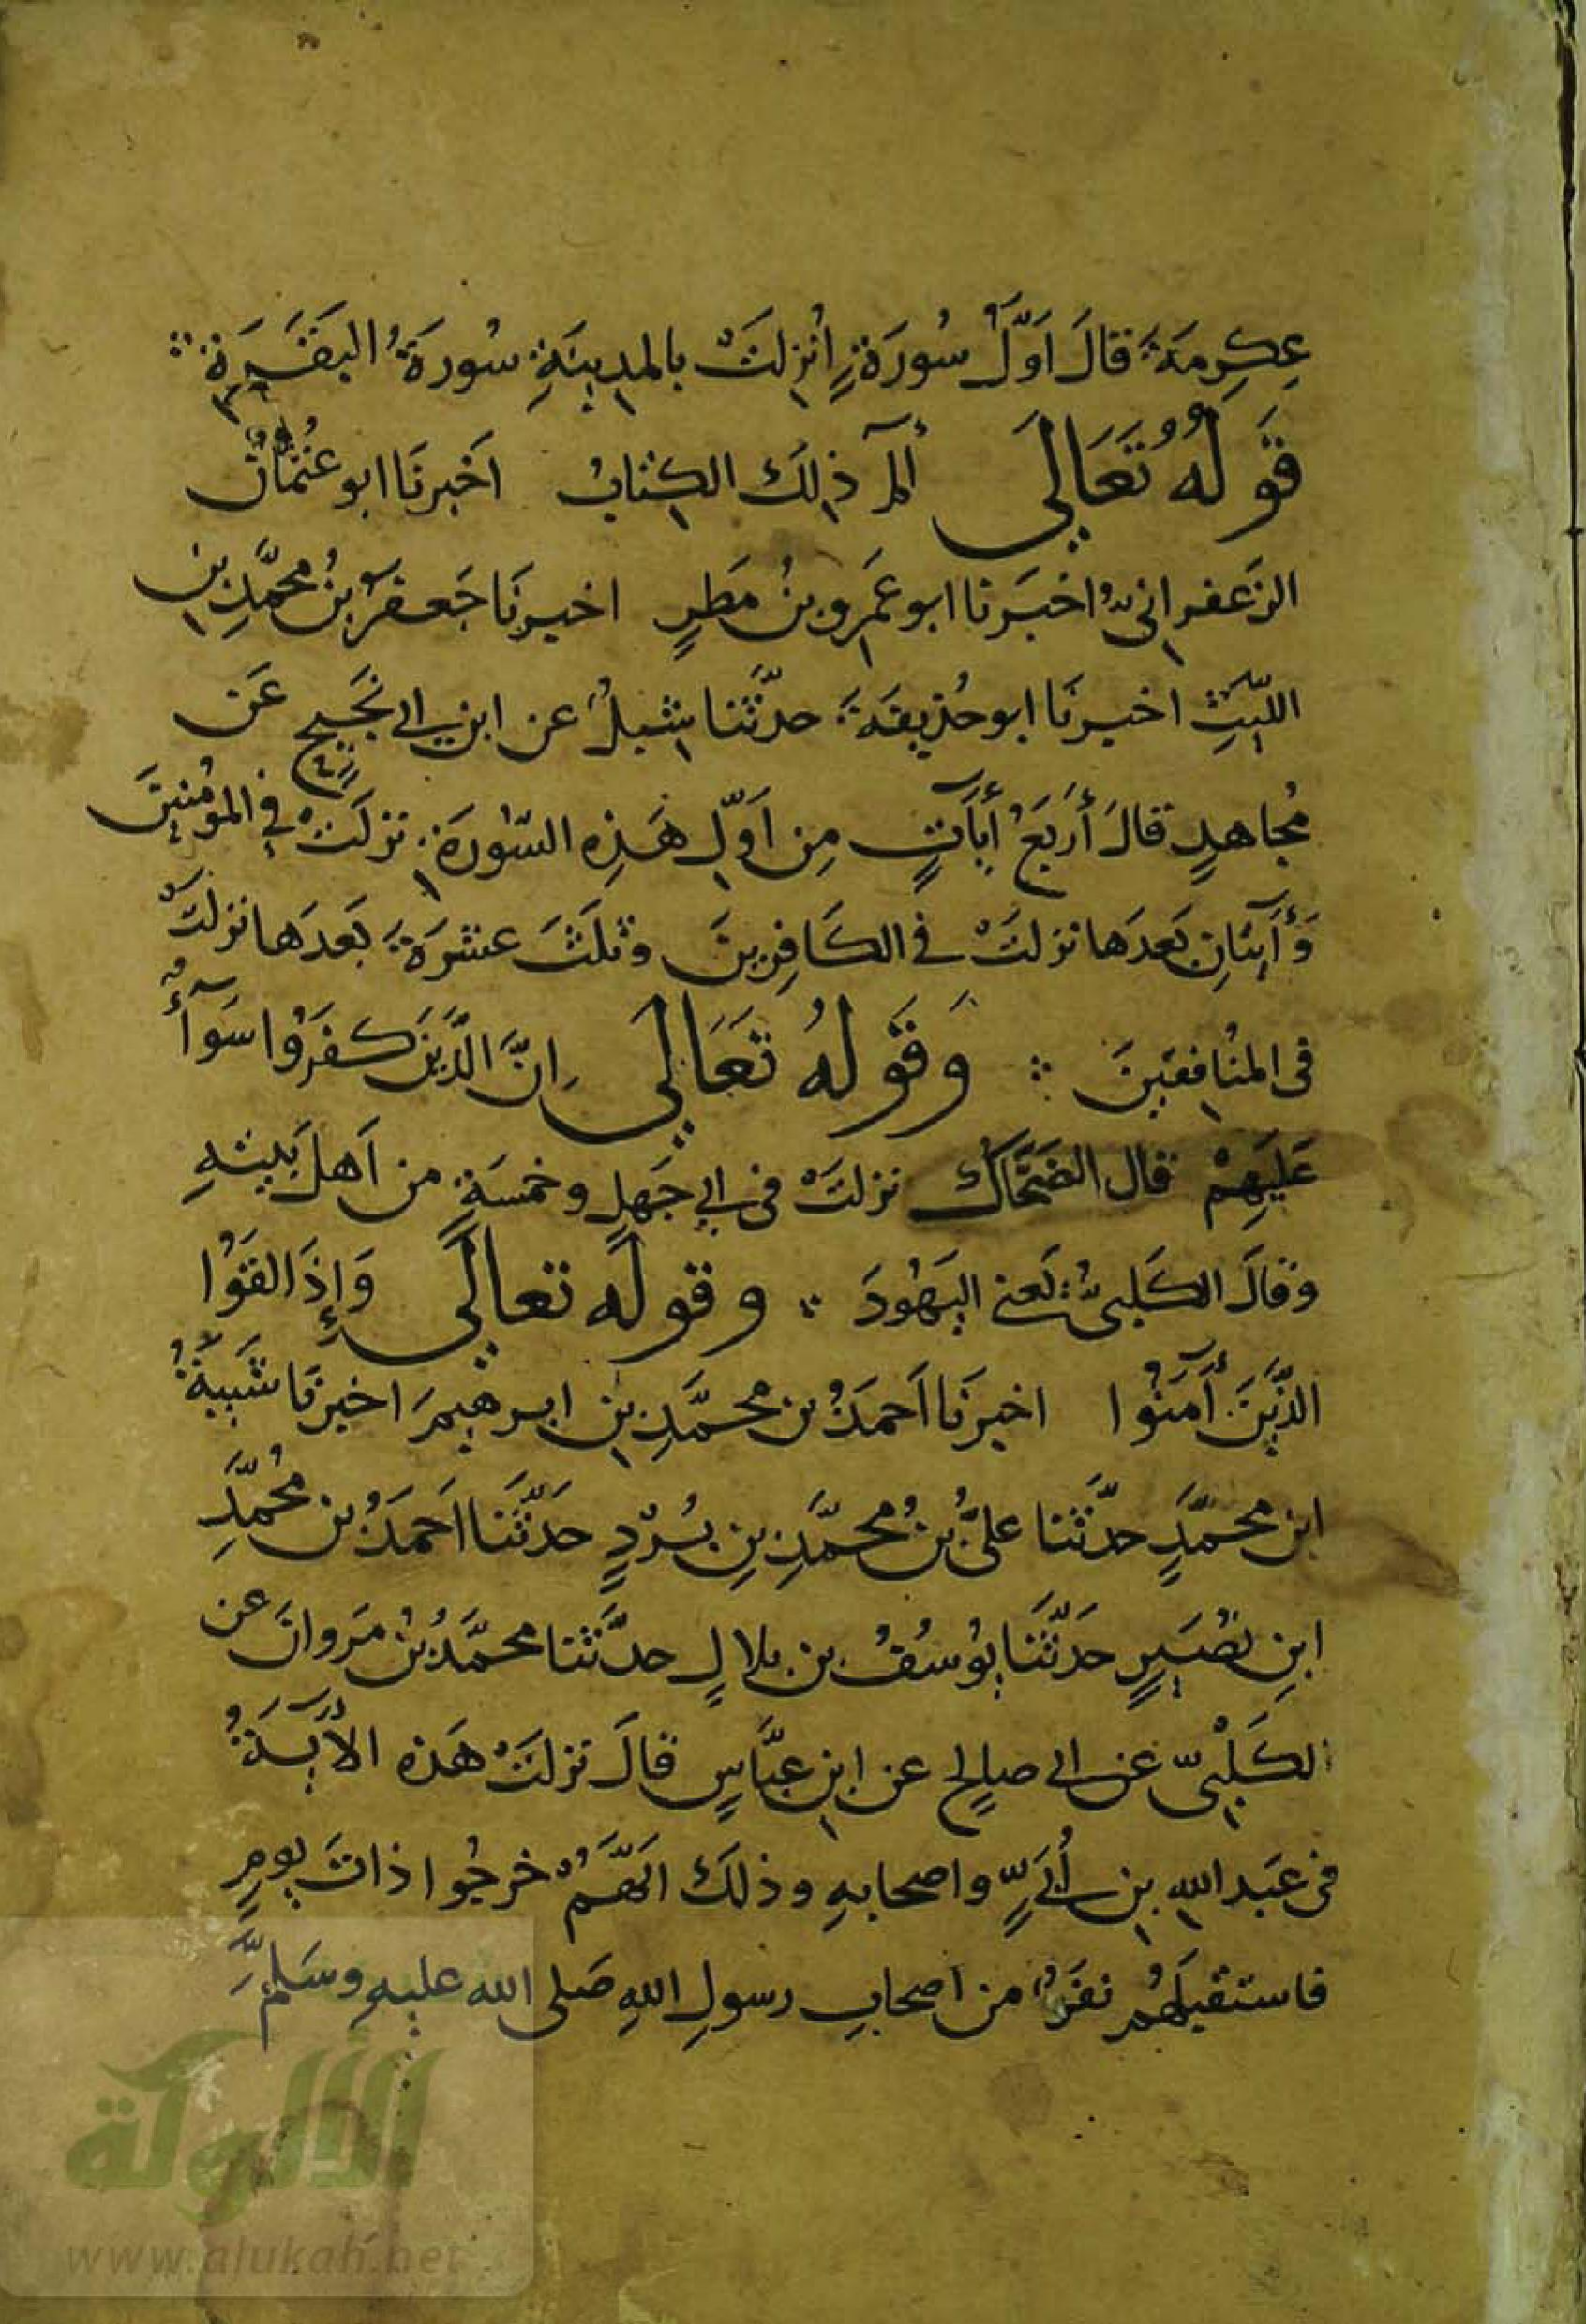 عِكرِمَةَ قالَ اَوَّلُ سُورَةٍ اُنزِلَتْ بالمدِينَةِ سُورَةُ البَقَرَةِ
قَولُهُ تَعَالَي الٓمٓ ذلِكَ الكِتابُ اَخبرنَا ابو عُثمانَ
الزعفرانىُّ اخبَرنا ابو عَمرو بنُ مَطَرٍ اخبرنَا جَعفرُ بنُ محمَّدِ بنِ
اللَّيثِ اخبرنَا ابو حُذيفَةَ حدَّثنا شبلُ عن ابنِ ابي نَجِيحٍ عَن
مُجاهدٍ قالَ أَربَعُ أَيَاتٍ مِن اَوّلِ هَذِه السّورَةِ نزلَتْ في المؤمنينَ
وَأَيَتانِ بَعدَها نزلتْ في الكَافِرينَ وثلثَ عشرَةَ بَعدَها نزلتْ
فى المنافقينَ وَقَولهُ تَعَالي اِنَّ الَّذينَ كفَرُوا سَوآءٌ
عَليهِمْ قال الضحَّاكُ نزلتْ فى ابي جَهلٍ وخمسَةٍ من اَهل بَيتهِ
وقالَ الكَلبىُّ يَعني اليَهُودَ وقولَه تعالَي وَإِذَا لقَوُا
الذّينَ أَمَنُوا اخبرنَا اَحمَدُ بن محمَّدِ بنِ ابرهيمَ اخبرنَا شَيبَةُ
ابن محمّدٍ حدَّثنا علىُّ بنُ محمَّدِ بنِ بُرْدٍ حَدَّثنَا اَحمَدُ بن مُحمَّدِ
ابنِ نصُيرٍ حَدّثنَا يُوسُفُ بن بلالٍ حدَّثنا محمَّدُ بنُ مَروانَ عن
الكَلْبىّ عَن ابي صالحٍ عن ابنِ عبَّاسٍ قالَ نزلتْ هَذه الأَيَةُ
فى عَبد اللهِ بنِ أُبَيٍّ واصحابهِ وذلكَ اَنّهمُ خرجُوا ذاتَ يومٍ
فاستقبلَهُم نفَرٌ من اصحابِ رسولِ اللهِ صَلى الله عليهِ وسَلمَّ
الألوكة
www.alukah.net